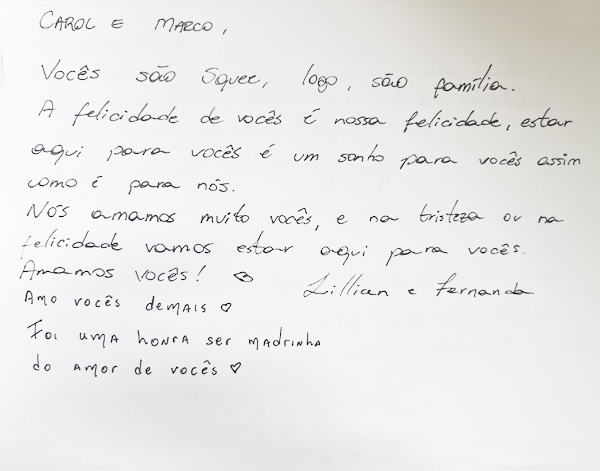 CAROL E MARCO,
Vocês são Squee, logo, são família.
A felicidade de vocês é nossa felicidade, estar
aqui para vocês é um sonho para vocês assim
como é para nós.
Nós amamos muito vocês, e na tristeza ou na
felicidade vamos estar aqui para vocês.
Amamos vocês! ♡
Lillian e Fernanda
Amo vocês demais ♡
Foi uma honra ser madrinha
do amor de vocês ♡